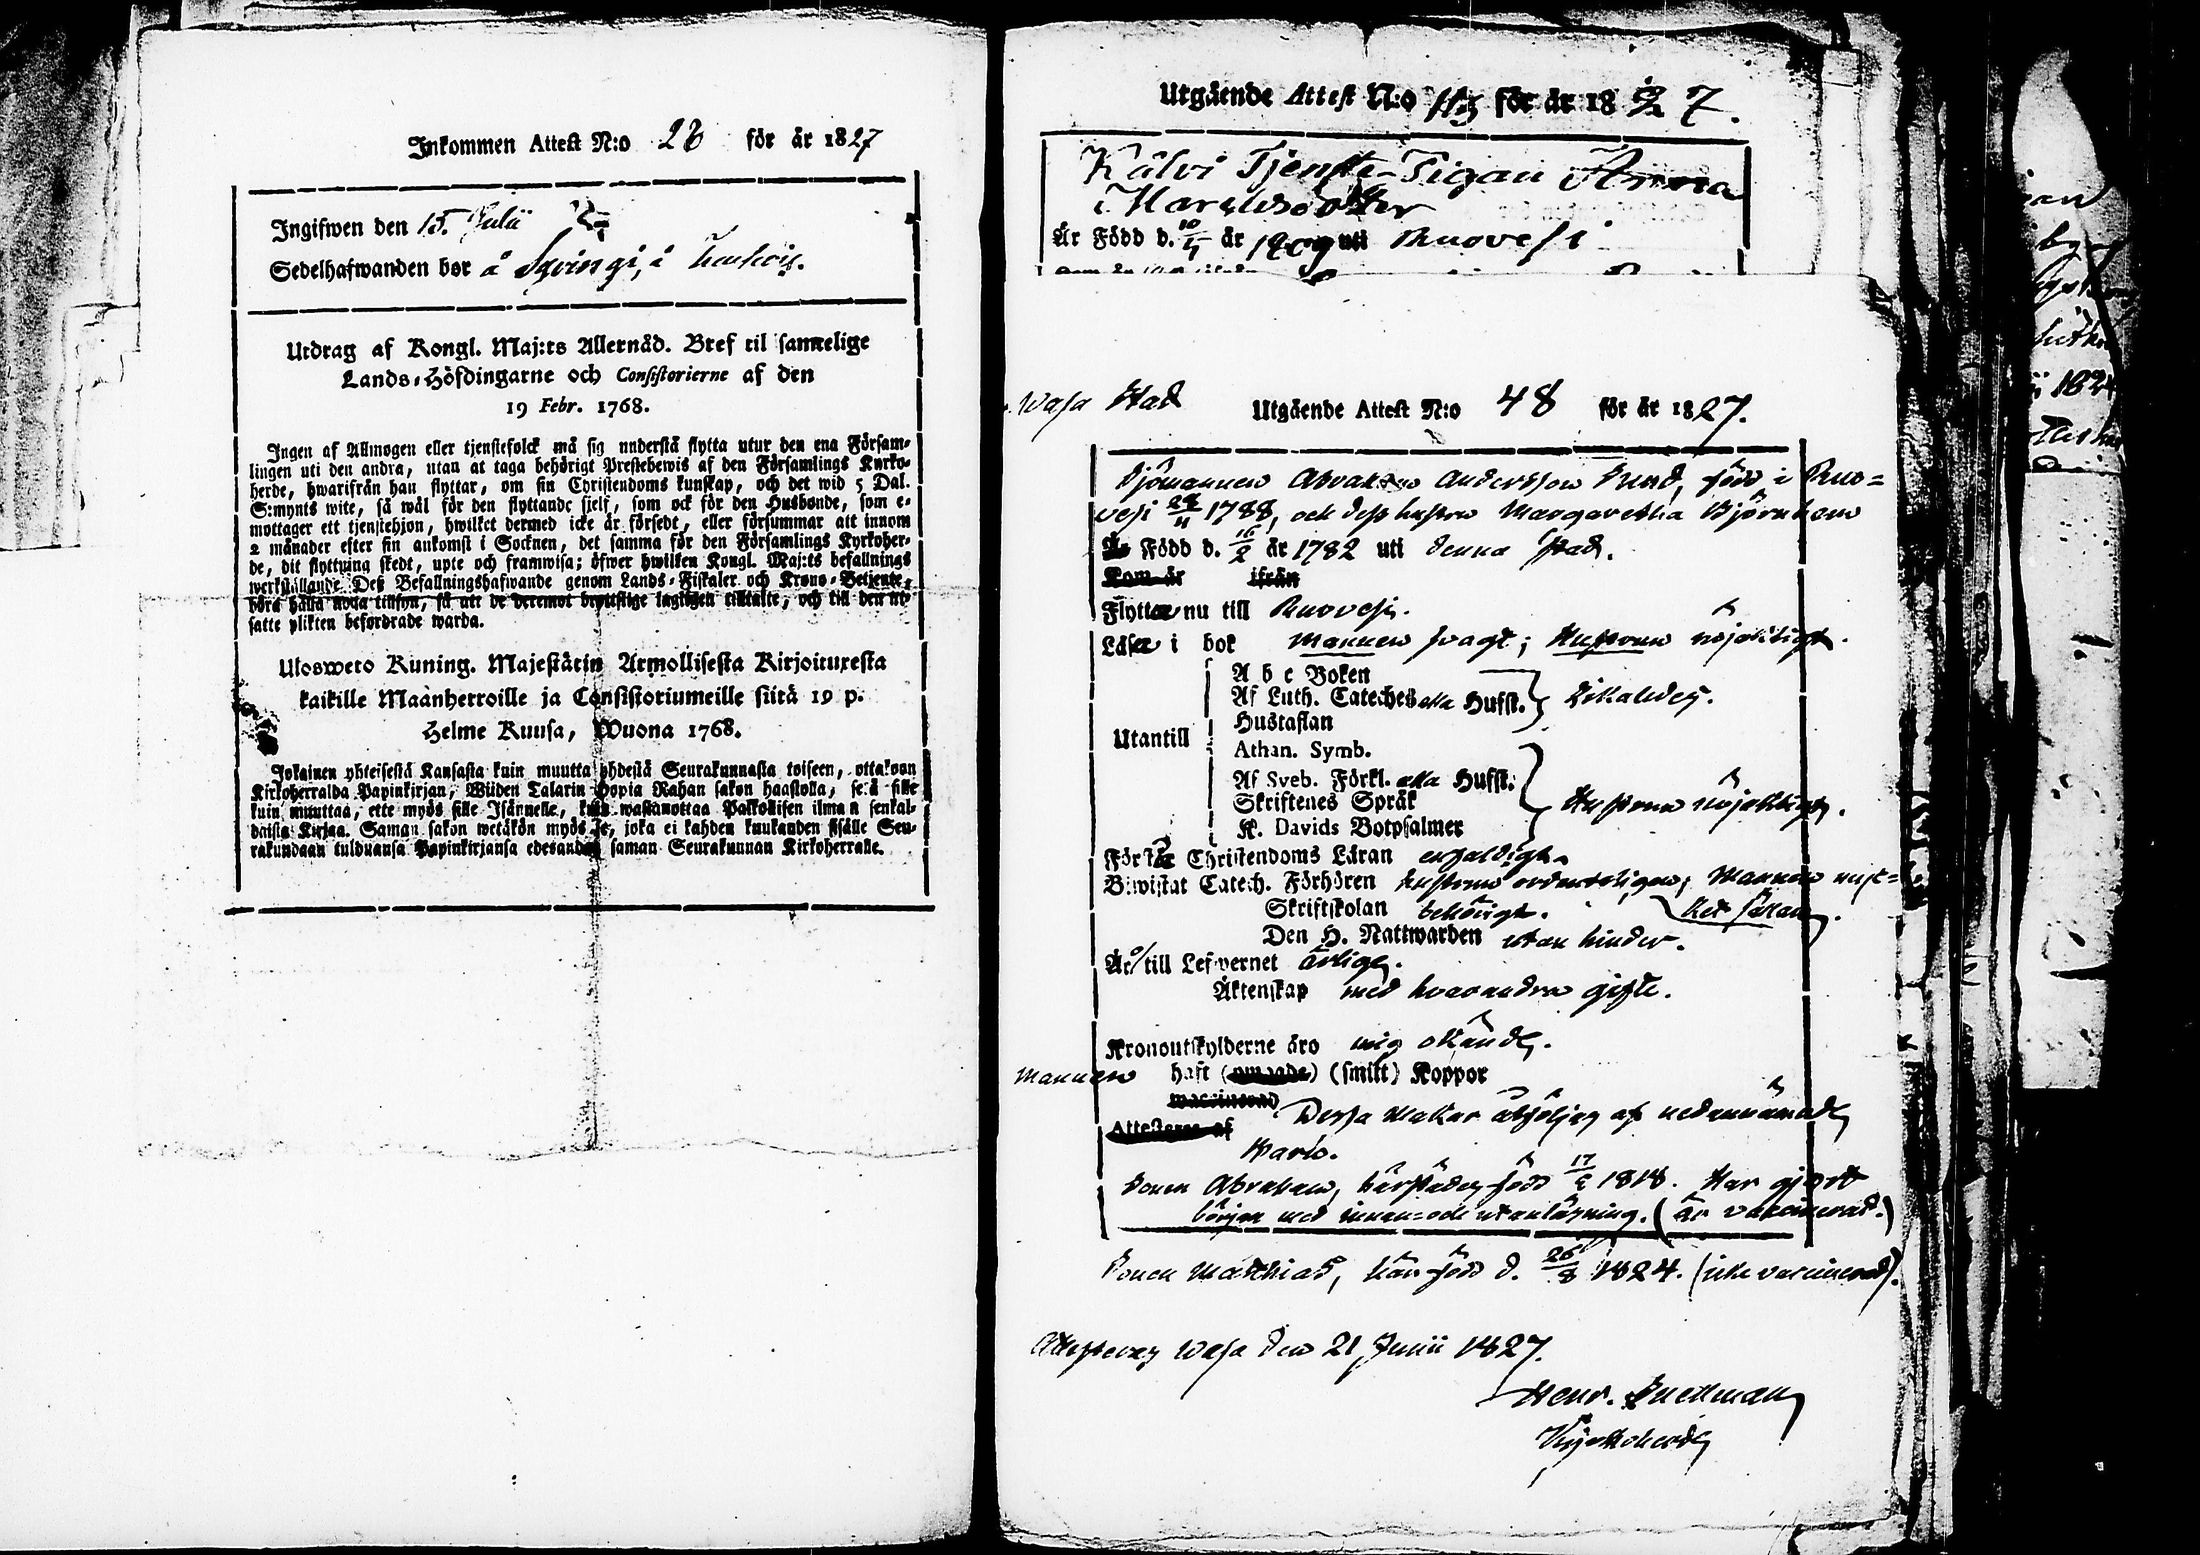 Inkommen Attest N:o 28 för år 1827
Ingifwen den 15. Julii
Sedelhafwanden bor å
Utdrag af Kongl. Maj:ts Allernåd. Bref til samtelige
Lands-Höfdingarne och Consistorierne af den
19 Febr. 1768.
Ingen af Allmogen eller tjenstefolck må sig understå flytta utur den ena Försam-
lingen uti den andra, utan at taga behörigt Prestebewis af den Församlings Kyrko-
herde, hwarifrån han flyttar, om sin Christendoms kunskap, och det wid 5 Dal.
S:mynts wite, så wäl för den flyttande sjelf, som ock för den Husbonde, som e-
mottager ett tjenstehjon, hwilket dermed icke är försedt, eller försummar att innom
2 månader efter sin ankomst i Socknen, det samma för den Församlings Kyrkoher-
de, dit flyttning skedt, upte och framwisa; öfwer hwilken Kongl. Maj:ts befallnings
werkställande Deß Befallningshafwande genom Lands-Fiskaler och Krono-Betjente,
böra hålla noga tillsyn, så att de deremot brottslige lagligen tilltalte, och till den ut-
satte plikten befordrade warda.
Ulosweto Kuning. Majestätin Armollisesta Kirjoituxesta
kaikille Maanherroille ja Consistoriumeille siitä 19 p.
Helme Kuusa, Wuona 1768.
Jokainen yhteisestä Kansasta kuin muutta yhdestä Seurakunnasta toiseen, ottakoon
Kirkoherralda Papinkirjan, Wiiden Talarin Hopia Rahan sakon haastolla, sekä sille
kuin muuttaa, ette myös sille Isännelle, kuin wastanottaa Palkollisen ilman senkal-
daista Kirjaa. Saman sakon wetäkön myös se, joka ei kahden kuukauden sisälle Seu-
rakundaan tulduansa Papinkirjansa edesanda saman Seurakunnan Kirkoherralle.
Utgående Attest N:o 113 för år 1827.
Kälvi Tjenste-Pigan Anna
Är Född d. 10/4 år uti Ruovesi
Wasa Stad
Utgående Attest N:o 48 för år 1827.
Sjömannen Abraham Andersson Rund, född i Ruo-
vesi 28/11 1788, och dess hustru Margaretha Björnhem
Född d. 16/2 år 1782 uti denna Stad.
Kom år ifrån
Flytta nu till Ruovesi.
Läsa i bok Mannen svagt; Hustrun nöjaktigt.
Utantill
A b c Boken
Af Luth. Cateches alla Hufst. Likaledes.
Hustaflan
Athan. Symb.
Af Sveb. Förkl. alla Hufst.
Skriftenes Språk Hustrun nöjaktigt.
K. Davids Botpsalmer
Förstå Christendoms Läran enfaldigt.
Biwistat Catech. Förhören hustrun ordentligen; Mannen myc-
ket sällan.
Skriftskolan behörigt.
Den H. Nattwarden utan hinder.
Äro till Lefwernet ärlige.
Äktenskap med hvarandra gifte.
Kronoutskylderne äro mig okände.
Mannen haft (smitt) Koppor
Attesteras af
Dessa Makar åtföljas af nedannämnde
Barn.
Sonen Abraham, härstädes född 17/2 1818. Har gjort
början med innan- och utanläsning. (är vaccinerad.)
Sonen Matthias, här född d. 26/8 1824. (icke vaccinerad).
Attesteras Wasa den 21 Junii 1827.
Henr. Snellman
Kyrkoherde